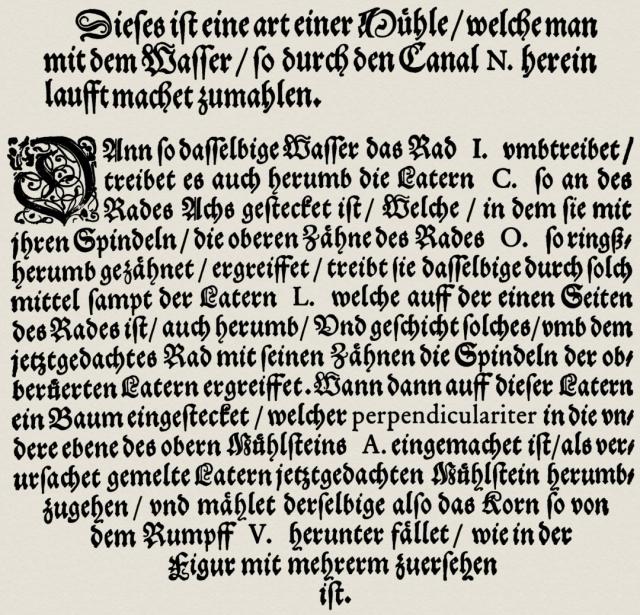 Dieses ist eine art einer Mühle / welche man
mit dem Wasser / so durch den Canal N. herein
laufft machet zumahlen.
DAnn so dasselbige Wasser das Rad I. vmbtreibet /
treibet es auch herumb die Latern C. so an des
Rades Achs gestecket ist / Welche / in dem sie mit
jhren Spindeln / die oberen Zähne des Rades O. so ringß-
herumb gezähnet / ergreiffet / treibt sie dasselbige durch solch
mittel sampt der Latern L. welche auff der einen Seiten
des Rades ist / auch herumb / Vnd geschicht solches / vmb dem
jetztgedachtes Rad mit seinen Zähnen die Spindeln der ob-
berüerten Latern ergreiffet. Wann dann auff dieser Latern
ein Baum eingestecket / welcher perpendiculariter in die vn-
dere ebene des obern Mühlsteins A. eingemachet ist / als ver-
ursachet gemelte Latern jetztgedachten Mühlstein herumb-
zugehen / vnd mählet derselbige also das Korn so von
dem Rumpff V. herunter fället / wie in der
Figur mit mehrerm zuersehen
ist.